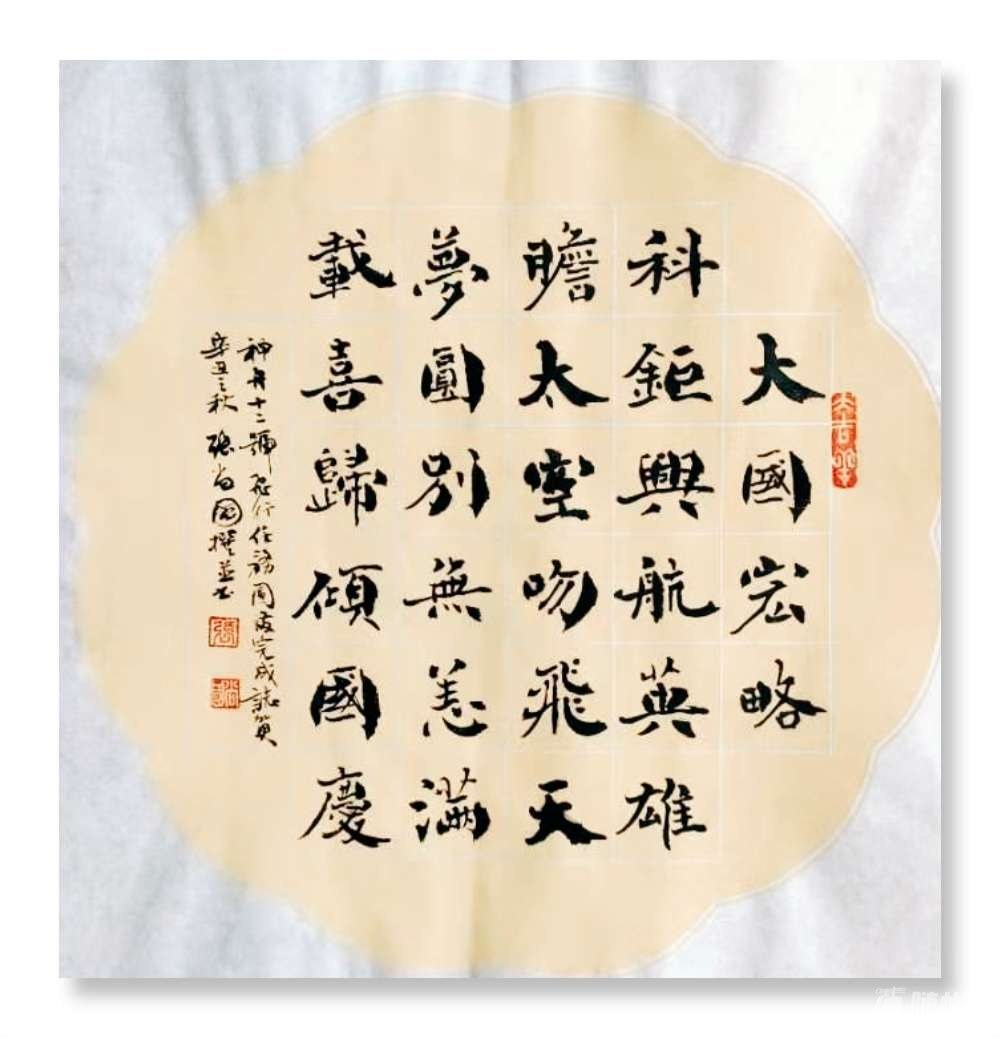 大國宏略
科鉅興航英雄
瞻太空吻飛天
夢圓別無恙滿
載喜歸頎國慶
神舟十二號飛行任務圓滿完成誌賀
辛丑之秋 張尚國撰並書